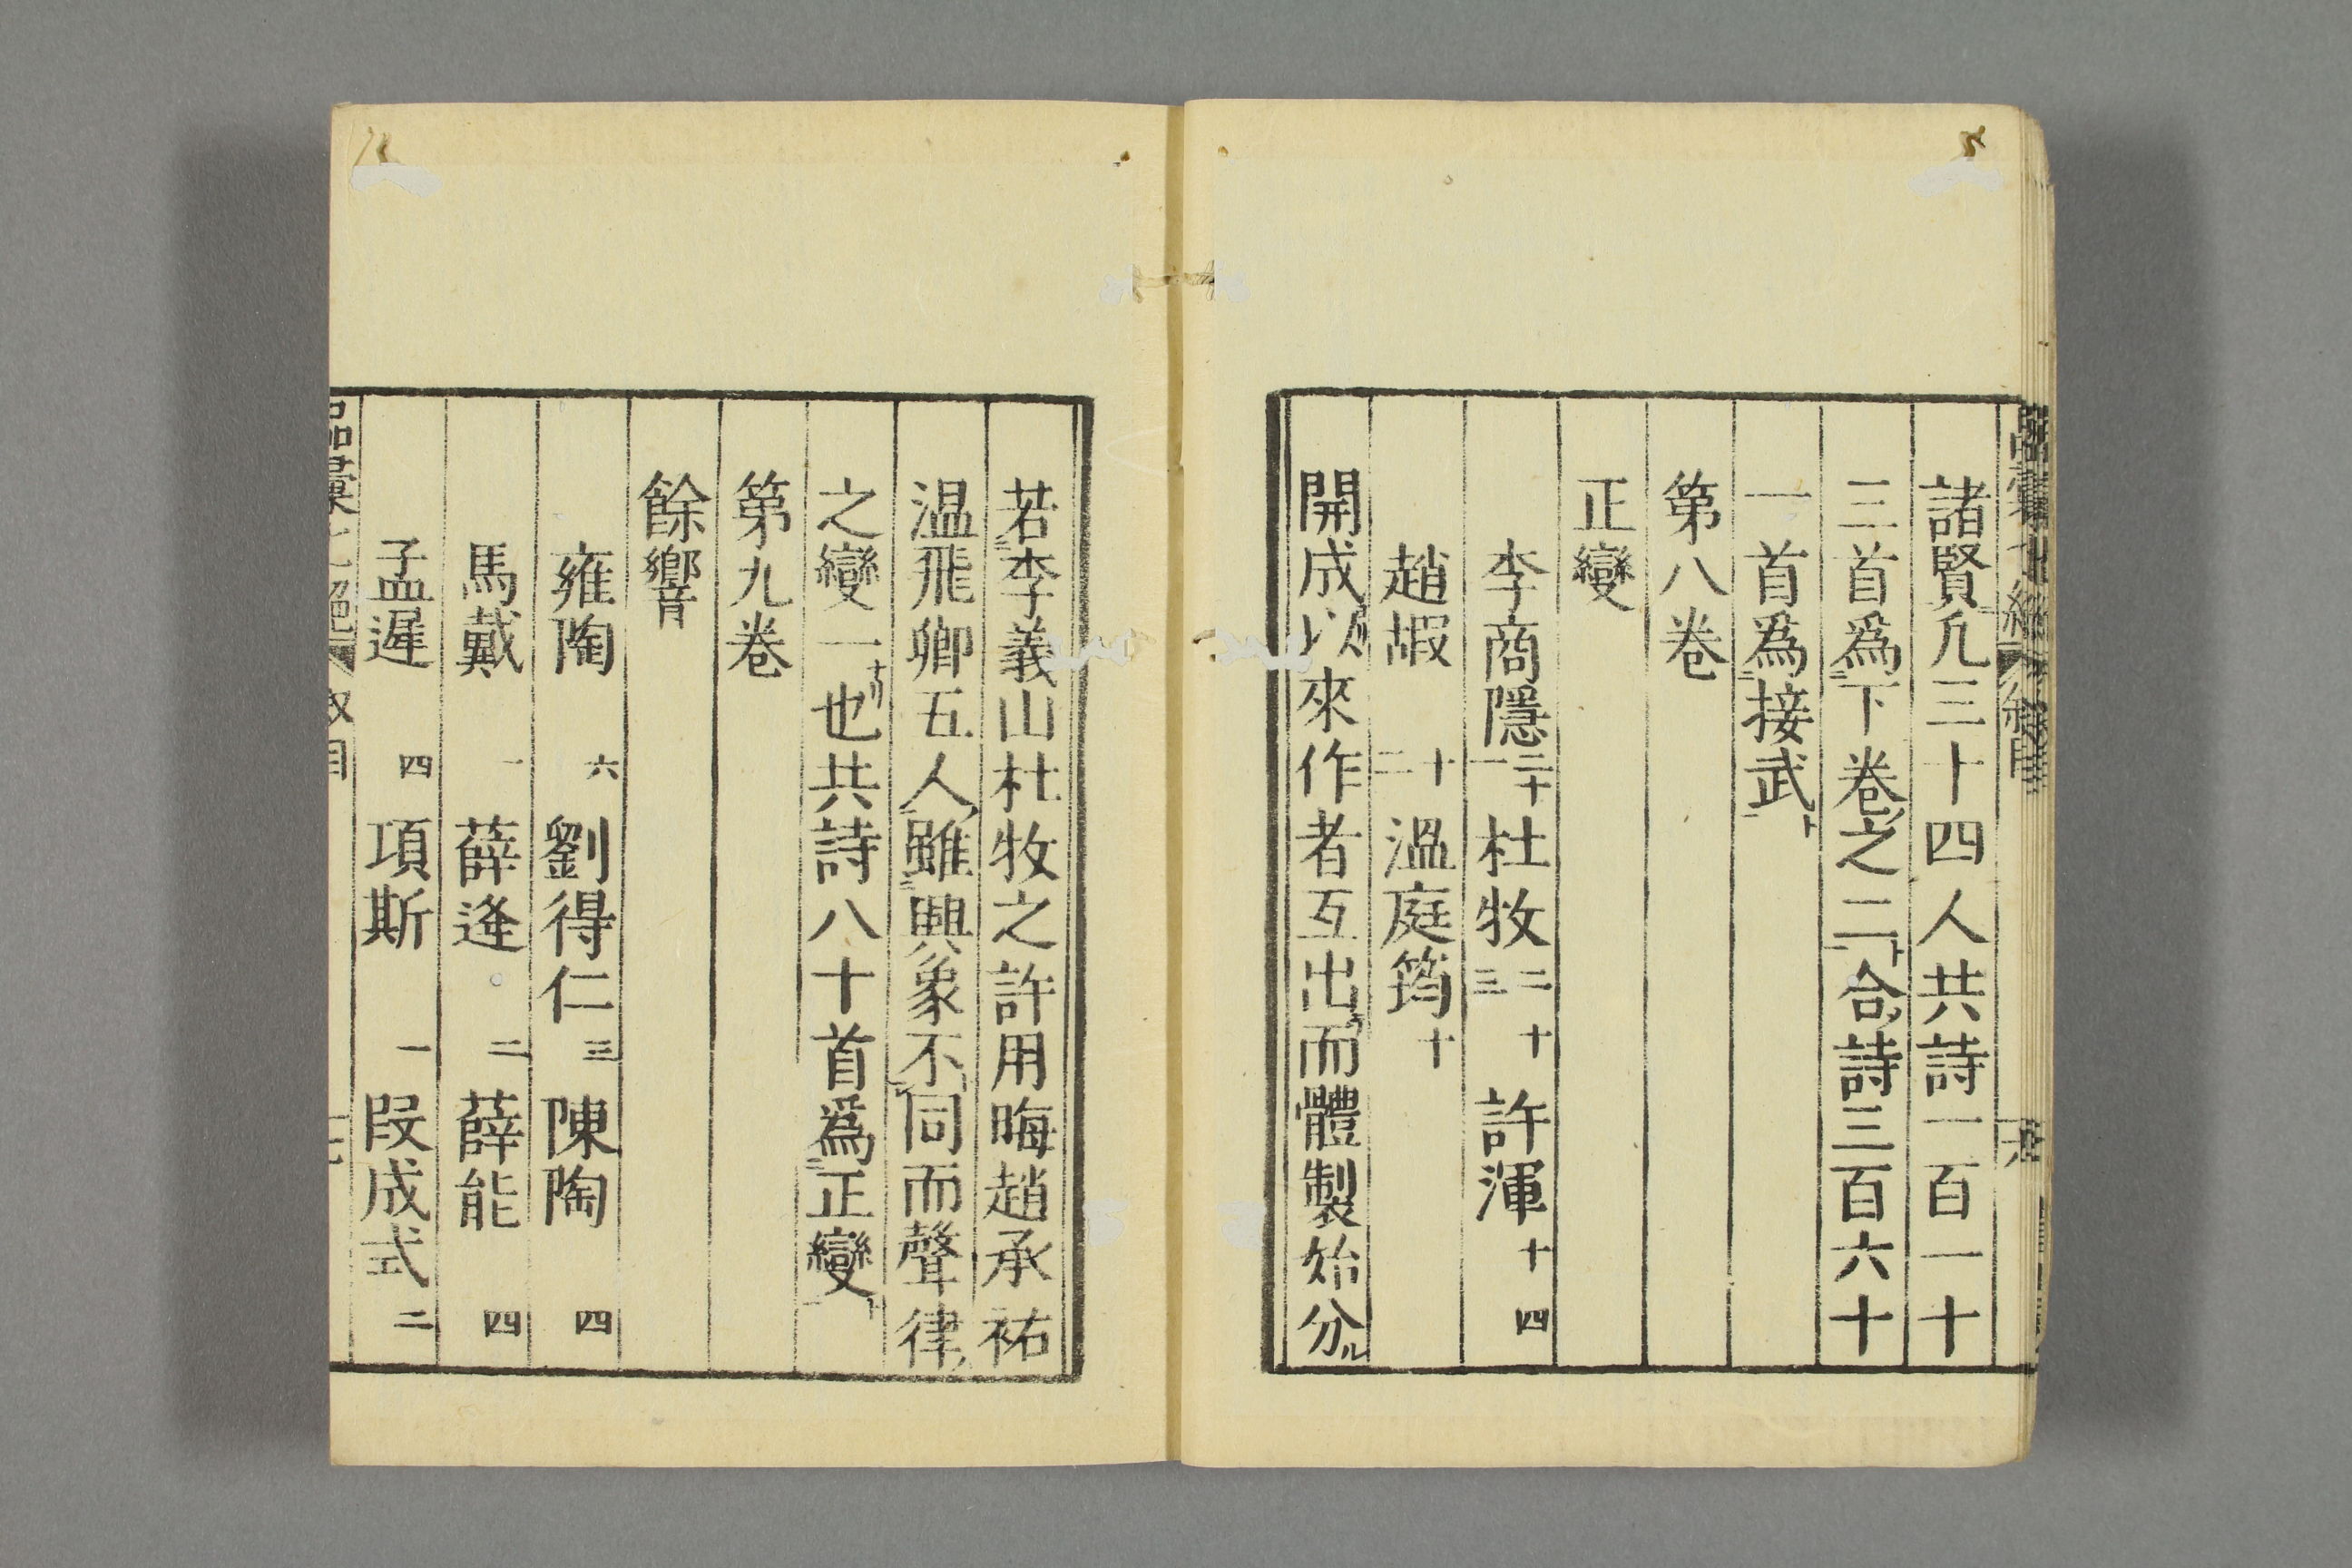 諸賢凡三十四人共詩一百一十
三首爲下卷之二合詩三百六十
一首爲接武
第八卷
正變
李商隱二十一 杜牧二十三 許渾十四
趙嘏十二 溫庭筠十
開成以來作者互出而體製始分
若李義山杜牧之許用晦趙承祐
温飛卿五人雖興象不同而聲律
之變一也共詩八十首爲正變
第九卷
餘響
雍陶六 劉得仁三 陳陶四
馬戴一 薛逢二 薛能四
孟遲四 項斯一 段成式二